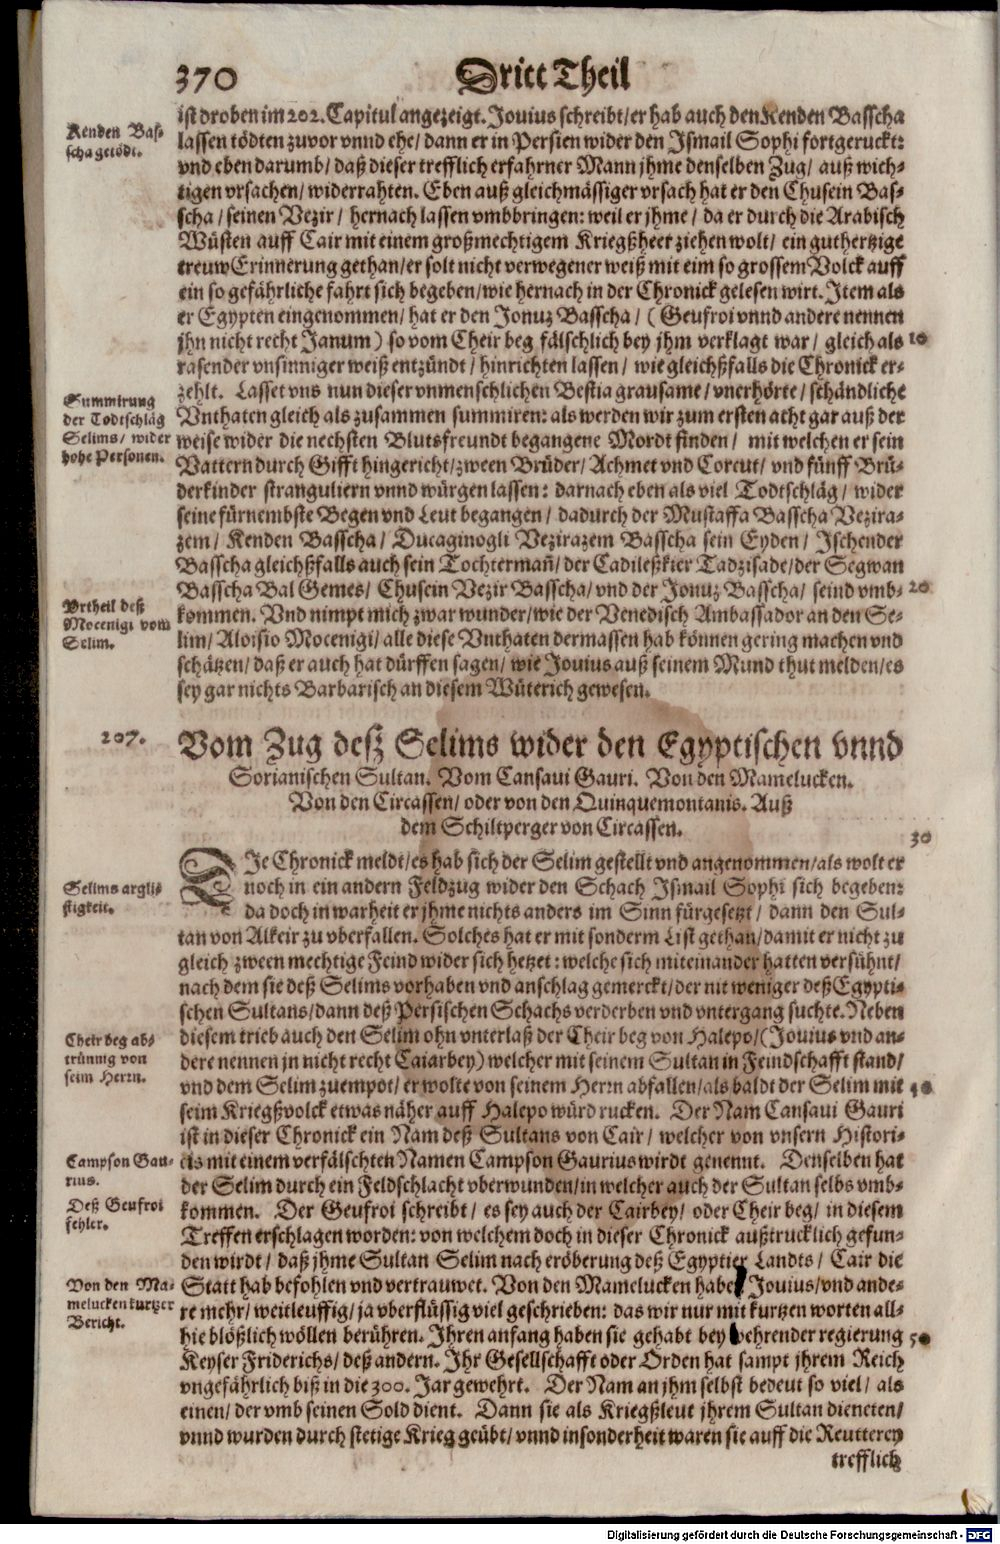 370 Dritt Theil
ist droben im 202. Capitul angezeigt. Jouius schreibt/er hab auch den Kenden Basscha
Kenden Bas-
scha getödt.
lassen tödten zuvor vnnd ehe/ dann er in Persien wider den Ismail Sophi fortgeruckt:
vnd eben darumb/ daß dieser trefflich erfahrner Mann jhme denselben Zug/ auß wich-
tigen vrsachen/ widerrahten. Eben auß gleichmässiger vrsach hat er den Chusein Bas-
scha/ seinen Vezir/ hernach lassen vmbbringen: weil er jhme/ da er durch die Arabisch
Wüsten auff Cair mit einem großmechtigem Kriegßheer ziehen wolt/ ein guthertzige
treuw Erinnerung gethan/er solt nicht verwegener weiß mit eim so grossem Volck auff
ein so gefährliche fahrt sich begeben/wie hernach in der Chronick gelesen wirt. Item als
er Egypten eingenommen/ hat er den Jonuz Basscha/ (Geufroi vnnd andere nennen
jhn nicht recht Janum) so vom Cheir beg fälschlich bey jhm verklagt war/ gleich als 10
rasender vnsinniger weiß entzündt/ hinrichten lassen/ wie gleichßfalls die Chronick er-
zehlt. Lasset vns nun dieser vnmenschlichen Bestia grausame/ vnerhörte/ schändliche
Summirung
der Todtschläg
Selims/ wider
hohe Personen.
Vnthaten gleich als zusammen summiren: als werden wir zum ersten acht gar auß der
weise wider die nechsten Blutsfreundt begangene Mordt finden/ mit welchen er sein
Vattern durch Gifft hingericht/zween Brüder/ Achmet vnd Corcut/ vnd fünff Brü-
derkinder stranguliern vnnd würgen lassen: darnach eben als viel Todtschläg/ wider
seine fürnembste Begen vnd Leut begangen/ dadurch der Mustaffa Basscha Vezira-
zem/ Kenden Basscha/ Ducaginogli Vezirazem Basscha sein Eyden/ Ischender
Basscha gleichßfalls auch sein Tochtermañ/ der Cadileßkier Tadzisade/der Segwan
Basscha Bal Gemes/ Chusein Vezir Basscha/ vnd der Jonuz Basscha/ seind vmb- 20
Vrtheil deß
Mocenigi vom
Selim.
kommen. Vnd nimpt mich zwar wunder/wie der Venedisch Ambassador an den Se-
lim/ Aloisio Mocenigi/ alle diese Vnthaten dermassen hab können gering machen vnd
schätzen/ daß er auch hat dürffen sagen/ wie Jouius auß seinem Mund thut melden/es
sey gar nichts Barbarisch an diesem Wüterich gewesen.
207. Vom Zug deß Selims wider den Egyptischen vnnd
Sorianischen Sultan. Vom Cansaui Gauri. Von den Mamelucken.
Von den Circassen/ oder von den Quinquemontanis. Auß
dem Schiltperger von Circassen.
30
DIe Chronick meldt/es hab sich der Selim gestellt vnd angenommen/als wolt er
Selims argli-
stigkeit.
noch in ein andern Feldzug wider den Schach Ismail Sophi sich begeben:
da doch in warheit er jhme nichts anders im Sinn fürgesetzt/ dann den Sul-
tan von Alkeir zu vberfallen. Solches hat er mit sonderm List gethan/damit er nicht zu
gleich zween mechtige Feind wider sich hetzet: welche sich miteinander hatten versühnt/
nach dem sie deß Selims vorhaben vnd anschlag gemerckt/der nit weniger deß Egypti-
schen Sultans/dann deß Persischen Schachs verderben vnd vntergang suchte. Neben
Cheir beg ab-
trünnig von
seim Herrn.
diesem trieb auch den Selim ohn vnterlaß der Cheir beg von Halepo/(Jouius vnd an-
dere nennen jn nicht recht Caiarbey) welcher mit seinem Sultan in Feindschafft stand/
vnd dem Selim zuempot/ er wolte von seinem Herrn abfallen/als baldt der Selim mit 40
seim Kriegßvolck etwas näher auff Halepo würd rucken. Der Nam Cansaui Gauri
ist in dieser Chronick ein Nam deß Sultans von Cair/ welcher von vnsern Histori-
Campson Gau-
rius.
cis mit einem verfälschten Namen Campson Gaurius wirdt genennt. Denselben hat
der Selim durch ein Feldschlacht vberwunden/in welcher auch der Sultan selbs vmb-
Deß Geufroi
fehler.
kommen. Der Geufroi schreibt/ es sey auch der Cairbey/ oder Cheir beg/ in diesem
Treffen erschlagen worden: von welchem doch in dieser Chronick außtrucklich gefun-
den wirdt/ daß jhme Sultan Selim nach eröberung deß Egyptier Landts/ Cair die
Von den Ma-
melucken kurtzer
Bericht.
Statt hab befohlen vnd vertrauwet. Von den Mamelucken habe Jouius/vnd ande-
re mehr/ weitleuffig/ ja vberflüssig viel geschrieben: das wir nur mit kurtzen worten all-
hie blößlich wöllen berühren. Ihren anfang haben sie gehabt bey wehrender regierung 50
Keyser Friderichs/ deß andern. Ihr Gesellschafft oder Orden hat sampt jhrem Reich
vngefährlich biß in die 300. Jar gewehrt. Der Nam an jhm selbst bedeut so viel/ als
einen/ der vmb seinen Sold dient. Dann sie als Kriegßleut jhrem Sultan diencten/
vnnd wurden durch stetige Krieg geübt/ vnnd insonderheit waren sie auff die Reutterey
trefflich
Digitalisierung gefördert durch die Deutsche Forschungsgemeinschaft - DFG